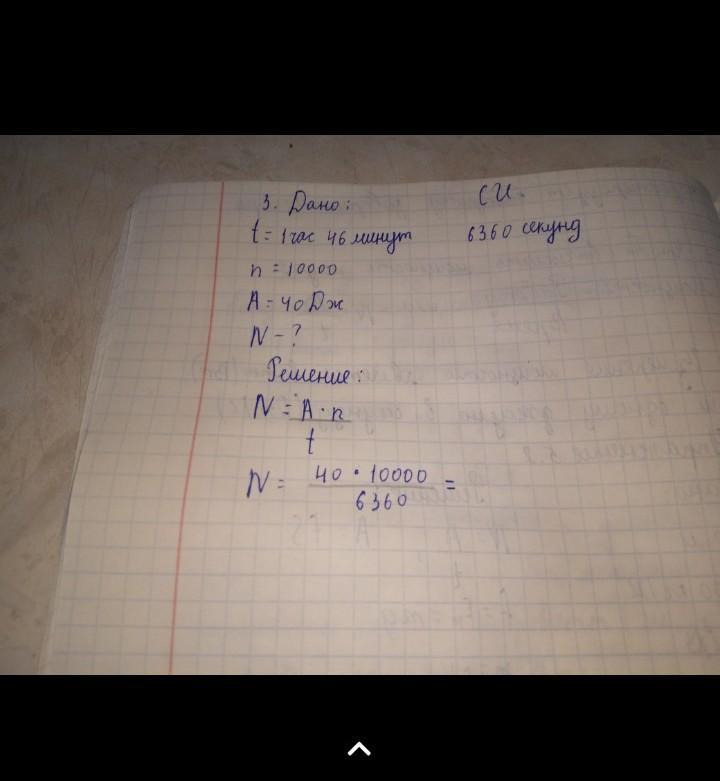 3. Дано: СИ
t = 1 час 46 минут 6360 секунд
n = 10000
A = 40 Дж
N - ?
Решение:
N = A · n
t
N = 40 · 10000 =
6360